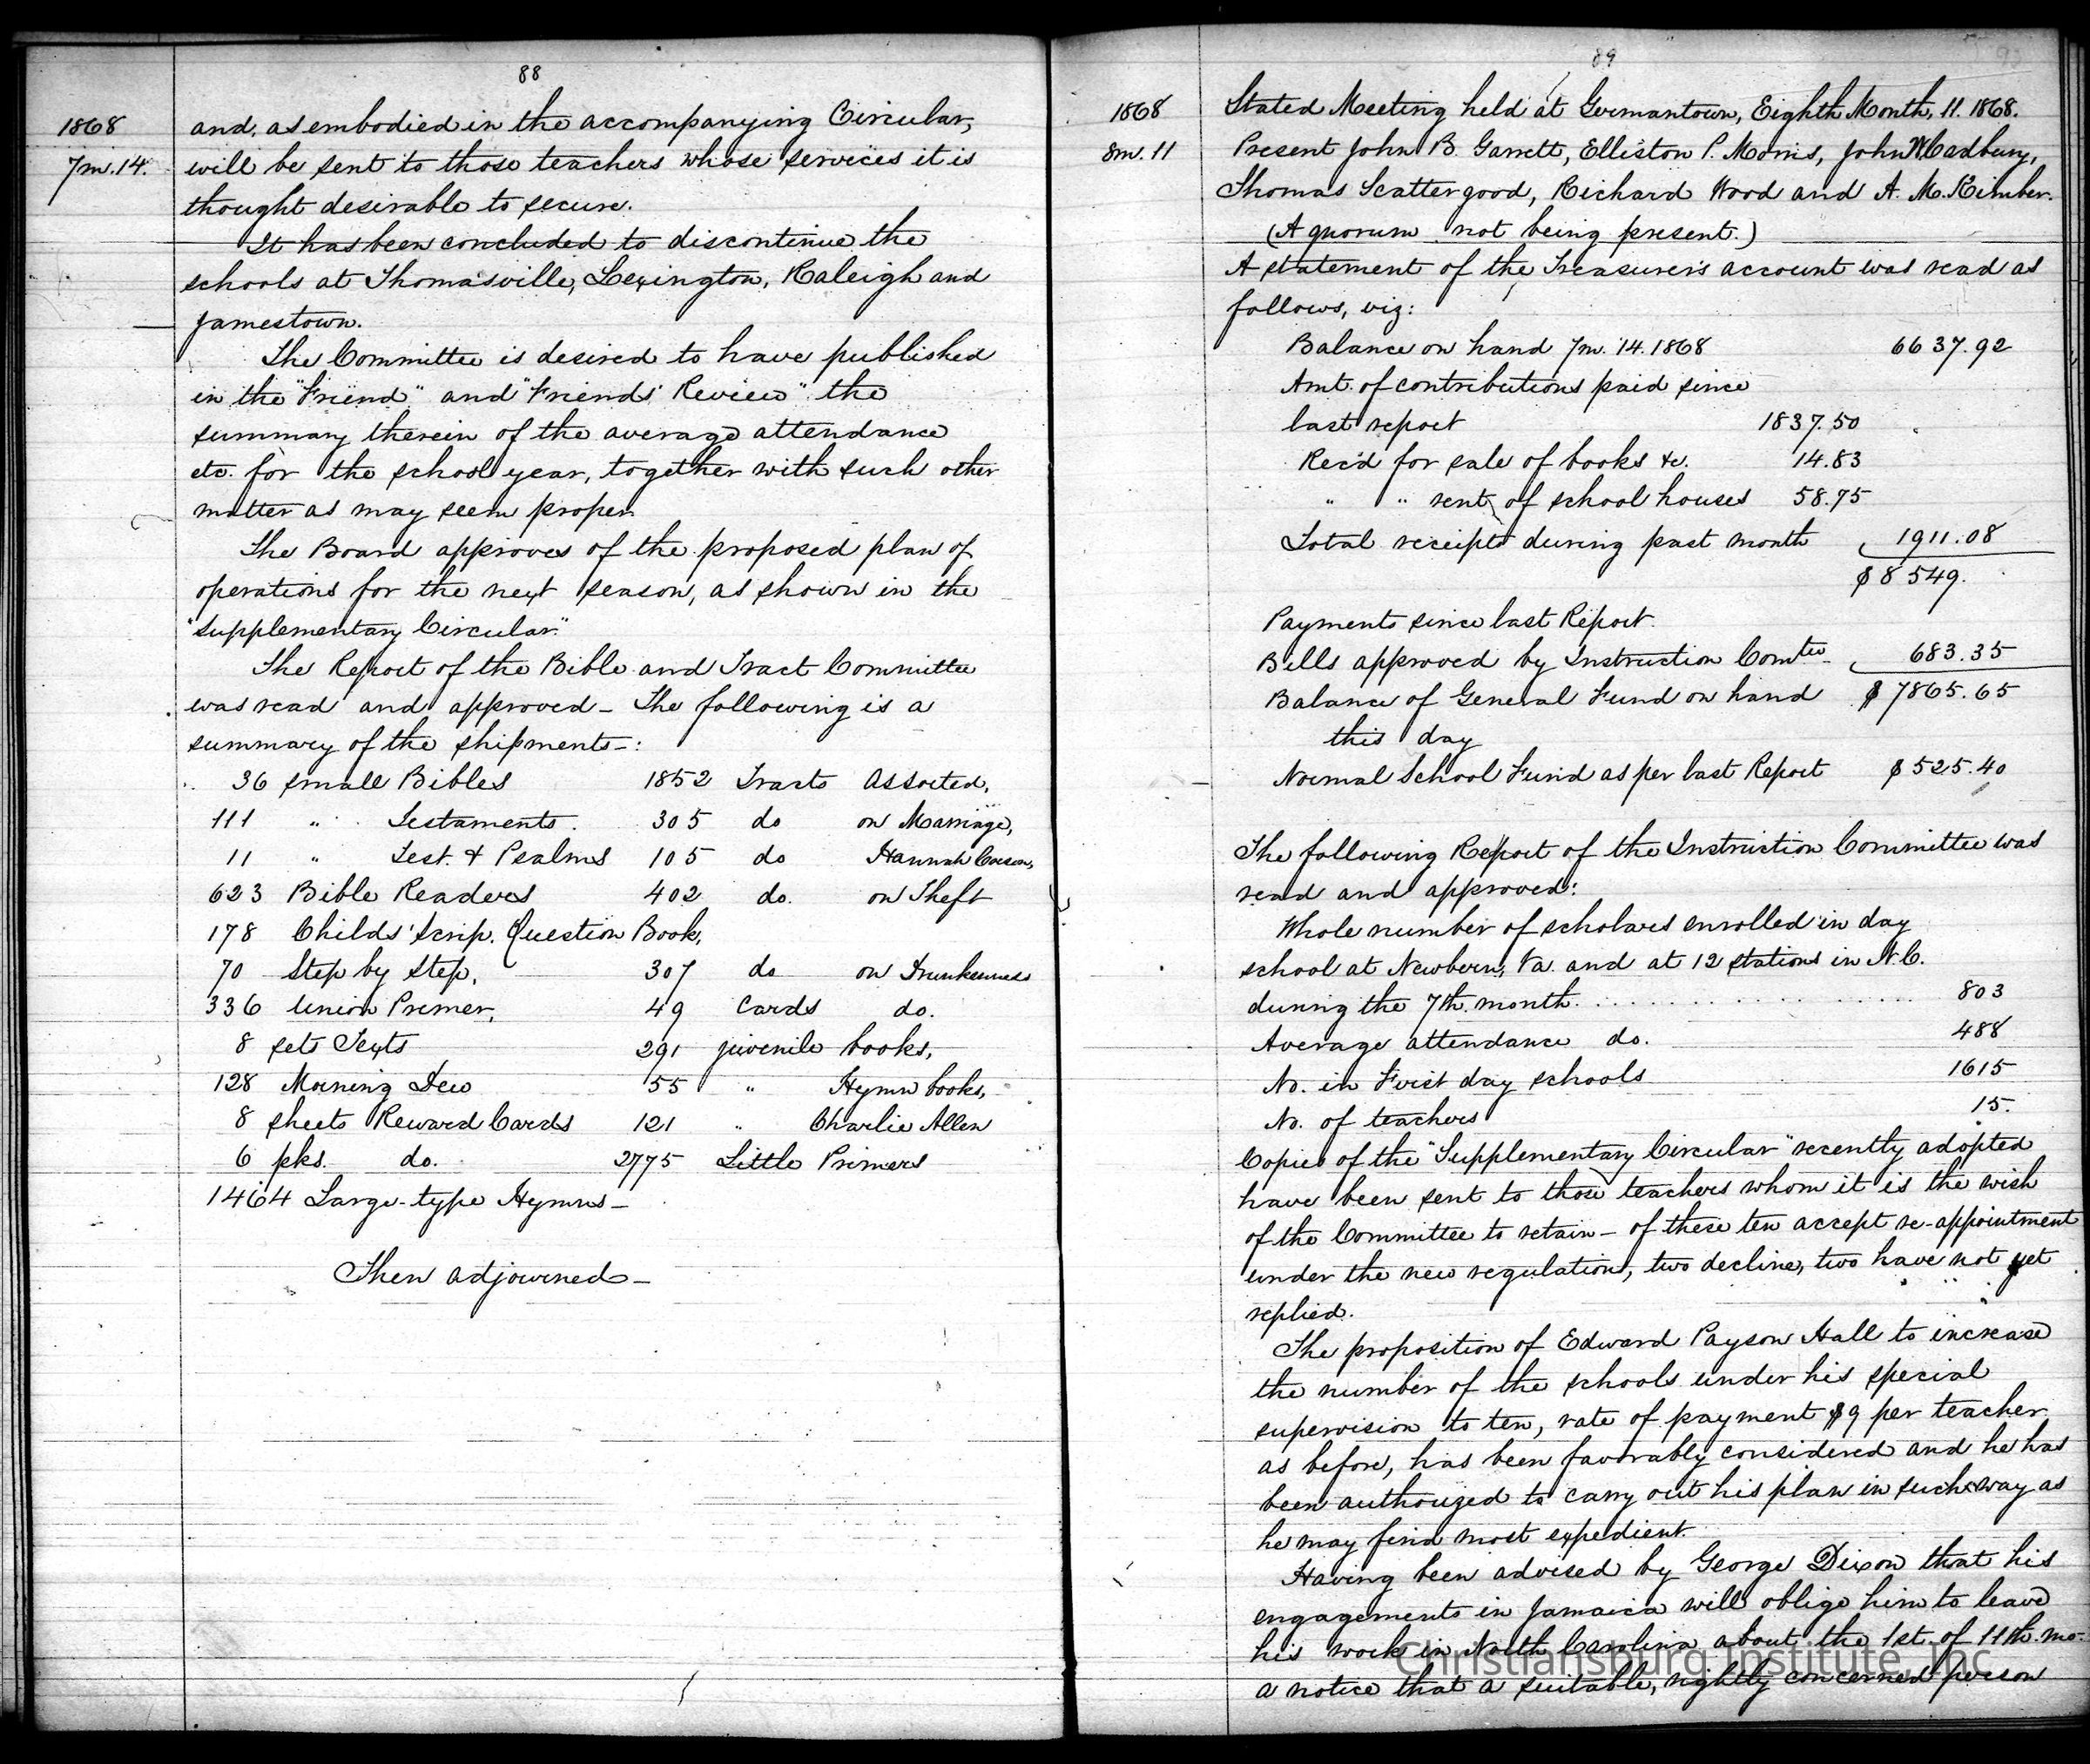 88
1868
7m. 14.
and, as embodied in the accompanying Circular,
will be sent to those teachers whose services it is
thought desirable to secure.
It has been concluded to discontinue the
schools at Thomasville, Lexington, Raleigh and
Jamestown.
The Committee is desired to have published
in the "Friend" and "Friends' Review" the
summary therein of the average attendance
etc. for the school year, together with such other
matter as may seem proper.
The Board approves of the proposed plan of
operations for the next season, as shown in the
"Supplementary Circular."
The Report of the Bible and Tract Committee
was read and approved – The following is a
summary of the shipments –:
36 small Bibles 1852 Tracts Assorted,
111 " Testaments. 305 do on Marriage,
11 " Test. & Psalms 105 do Hannah Carson,
623 Bible Readers 402 do. on Theft
178 Childs' Scrip. Question Book,
70 Step by Step, 307 do on Drunkenness
336 Union Primer, 49 Cards do.
8 sets Texts 291 juvenile books,
128 Morning Dew 55 " Hymn books,
8 sheets Reward Cards 121 " Charlie Allen
6 pks. do. 2775 Little Primers
1464 Large-type Hymns –
Then adjourned –
89
1868
8m. 11
Stated Meeting held at Germantown, Eighth Month, 11. 1868.
Present John B. Garrett, Elliston P. Morris, John W. Cadbury,
Thomas Scattergood, Richard Wood and A. M. Kimber.
(A quorum not being present.)
A statement of the Treasurer's account was read as
follows, viz:
Balance on hand 7m. 14. 1868 6637.92
Amt. of contributions paid since
last report 1837.50
Rec'd for sale of books &c. 14.83
" " rent of school houses 58.75
Total receipts during past month 1911.08
$8549.
Payments since last Report.
Bills approved by Instruction Comtee 683.35
Balance of General Fund on hand $7865.65
this day
Normal School Fund as per last Report $525.40
The following Report of the Instruction Committee was
read and approved:
Whole number of scholars enrolled in day
school at Newbern, Va. and at 12 stations in N.C.
during the 7th. month. . . . . . . . . . . . . . . . . 803
Average attendance do. 488
No. in First day schools 1615
No. of teachers 15.
Copies of the "Supplementary Circular" recently adopted
have been sent to those teachers whom it is the wish
of the Committee to retain – of these ten accept re-appointment
under the new regulations, two decline, two have not yet
replied.
The proposition of Edward Payson Hall to increase
the number of the schools under his special
supervision to ten, rate of payment $9 per teacher
as before, has been favorably considered and he has
been authorized to carry out his plan in such way as
he may find most expedient.
Having been advised by George Dixon that his
engagements in Jamaica will oblige him to leave
his work in North Carolina about the 1st. of 11th. mo.
a notice that a suitable, rightly concerned person
Christiansburg Institute, Inc